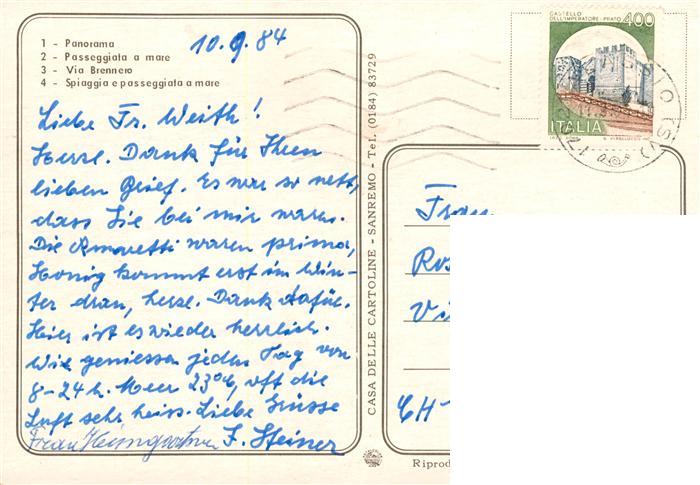 1 - Panorama
2 - Passeggiata a mare
3 - Via Brennero
4 - Spiaggia e passeggiata a mare
10.9.84
Liebe Fr. Weith!
Herzl. Dank für Ihren
lieben Brief. Es war so nett,
dass Sie bei mir waren.
Die Amaretti waren prima,
Honig kommt erst im Win-
ter dran, herzl. Dank dafür.
Hier ist es wieder herrlich.
Wir geniessen jeden Tag von
8-24 h. Meer 23°C, oft die
Luft sehr heiss. Liebe Grüsse
Frau Heimgartner F. Steiner
CASA DELLE CARTOLINE - SANREMO - Tel. (0184) 83729
CASTELLO
DELL'IMPERATORE - PRATO
400
ITALIA
Frau
Ros
Vi
CH-
Riprod